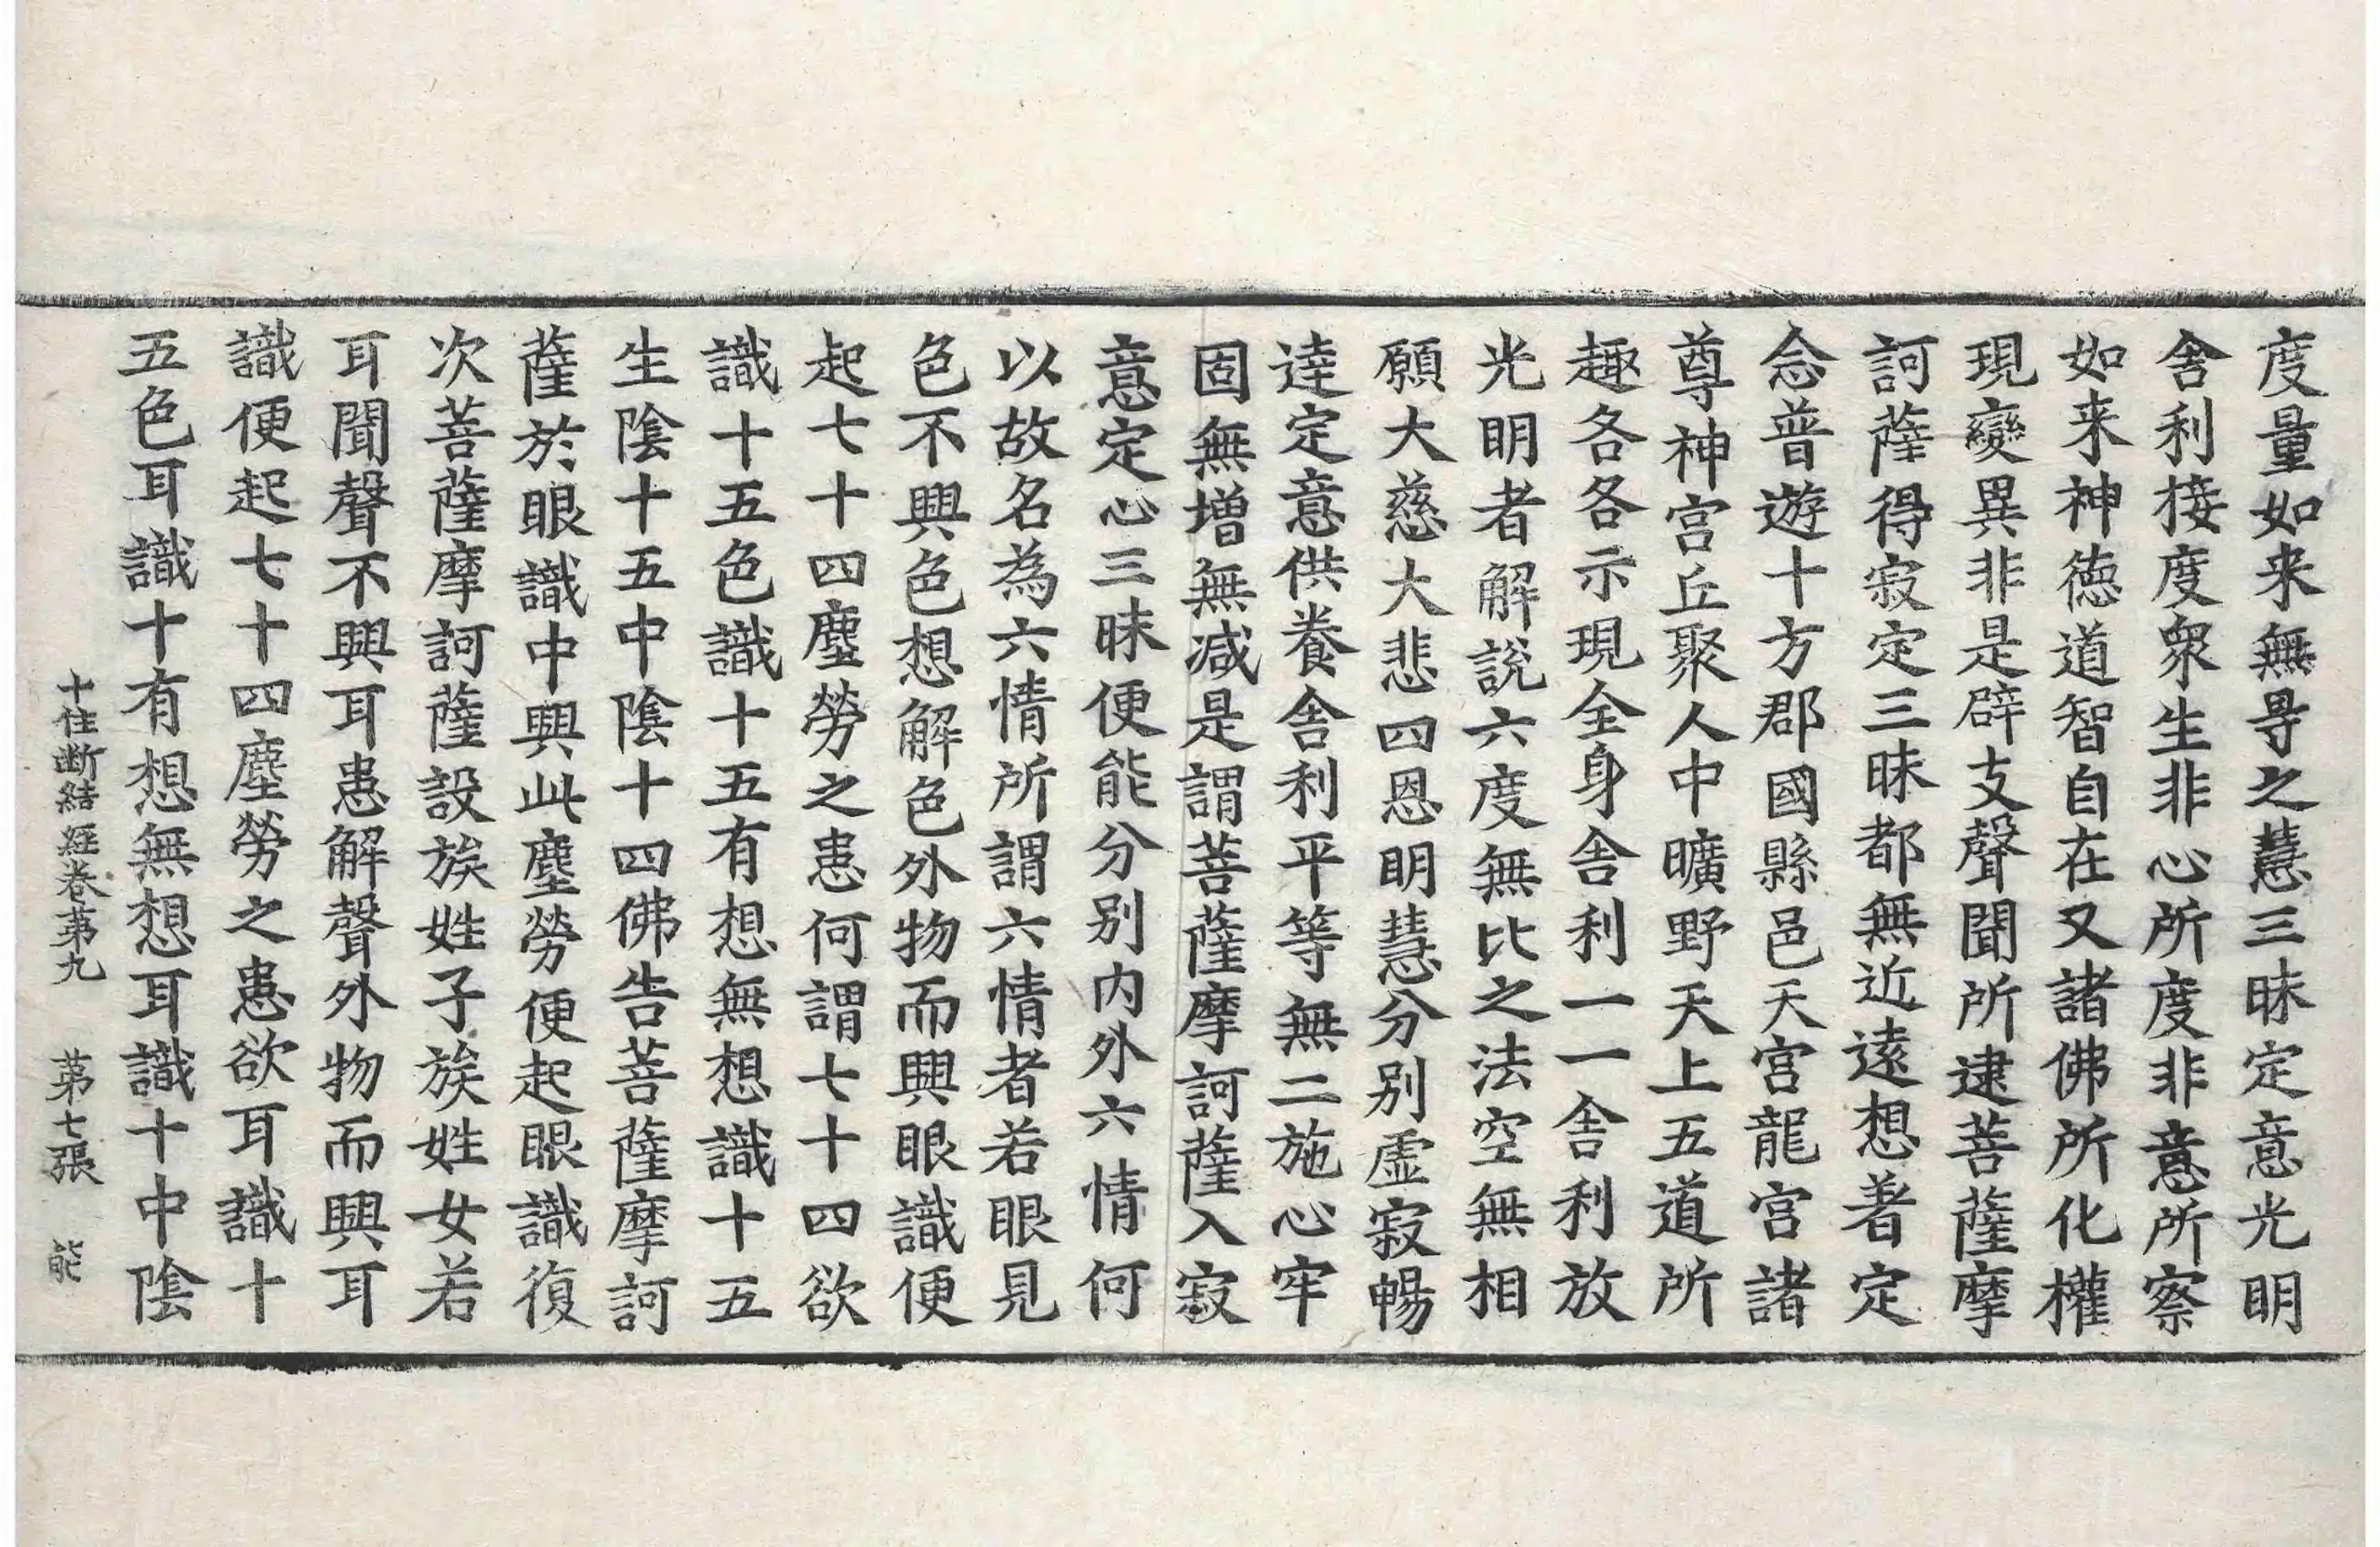 度量如来無㝵之慧三昧定意光明
舎利接度衆生非心所度非意所察
如来神徳道智自在又諸佛所化權
現變異非是辟支聲聞所逮菩薩摩
訶薩得寂定三昧都無近遠想著定
念普遊十方郡國縣邑天宮龍宮諸
尊神宮丘聚人中曠野天上五道所
趣各各示現全身舎利一一舎利放
光明者解說六度無比之法空無相
願大慈大悲四恩明慧分別虚寂暢
達定意供養舎利平等無二施心牢
固無増無减是謂菩薩摩訶薩入寂
意定心三昧便能分別内外六情何
以故名為六情所謂六情者若眼見
色不興色想解色外物而興眼識便
起七十四塵勞之患何謂七十四欲
識十五色識十五有想無想識十五
生陰十五中陰十四佛告菩薩摩訶
薩於眼識中興此塵勞便起眼識復
次菩薩摩訶薩設族姓子族姓女若
耳聞聲不興耳患解聲外物而興耳
識便起七十四塵勞之患欲耳識十
五色耳識十有想無想耳識十中陰
十住断結経卷第九　第七張　能